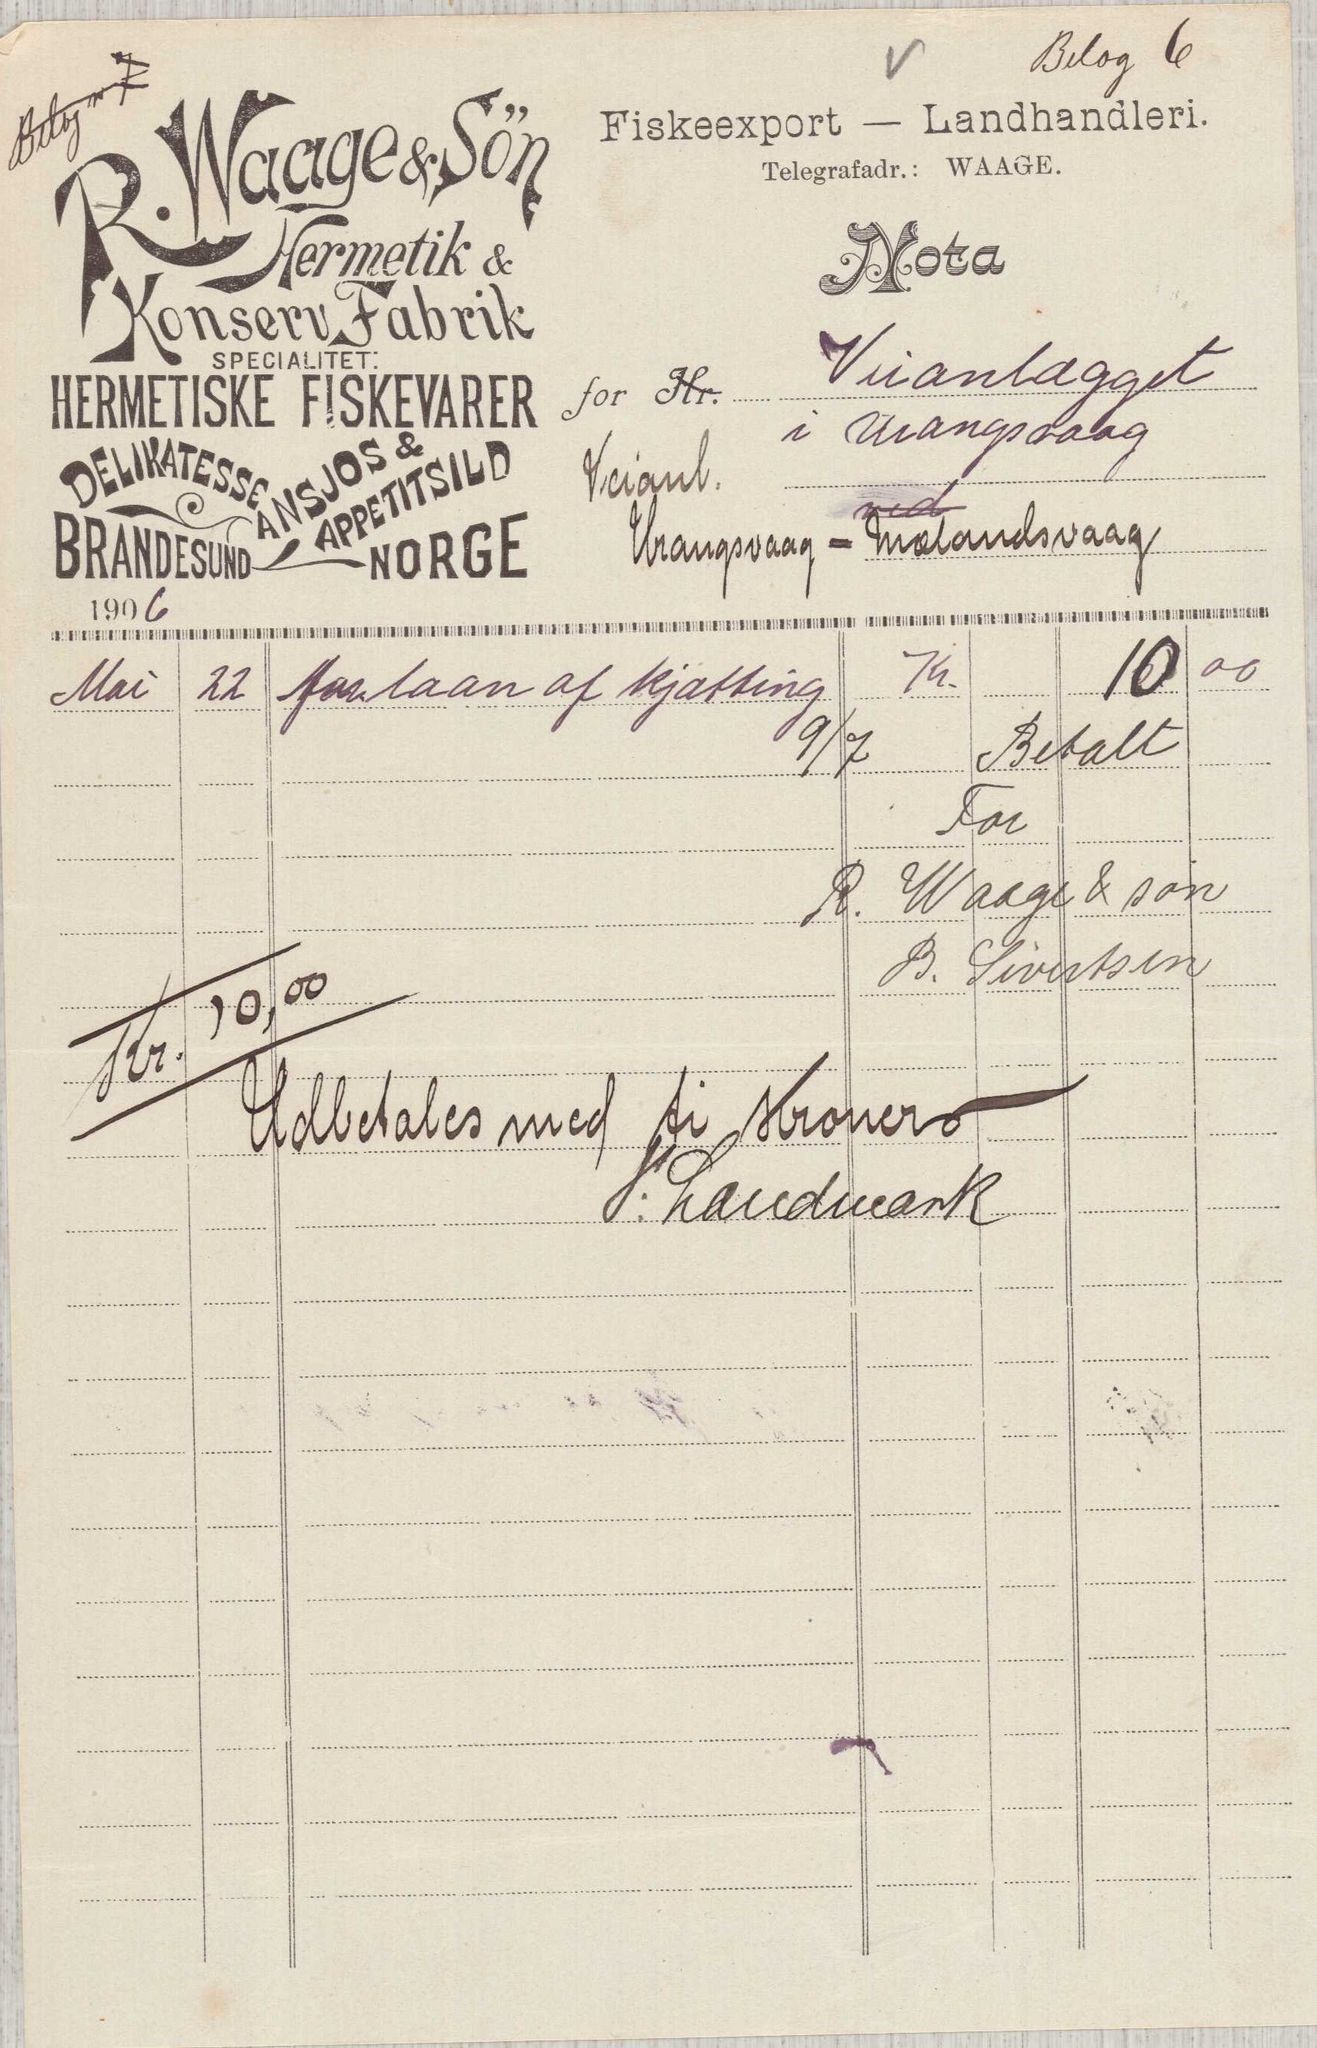 Bilag 6
Bilag nr 7
R. Waage & Sön
Hermetik &
Konserv. Fabrik
SPECIALITET:
HERMETISKE FISKEVARER
DELIKATESSE ANSJOS & APPETITSILD
BRANDESUND NORGE
Fiskeexport — Landhandleri.
Telegrafadr.: WAAGE.
Nota
for Hr. Veianlægget
i Vrangsvaag
Veianl.
ved
Vrangsvaag = Mælandsvaag
1906
Mai 22 for laan af kjætting Kr. 10 00
9/7 Betalt
For
R. Waage & søn
B. Sivertsen
Kr. 10,00
Udbetales med ti kroner
Landmark